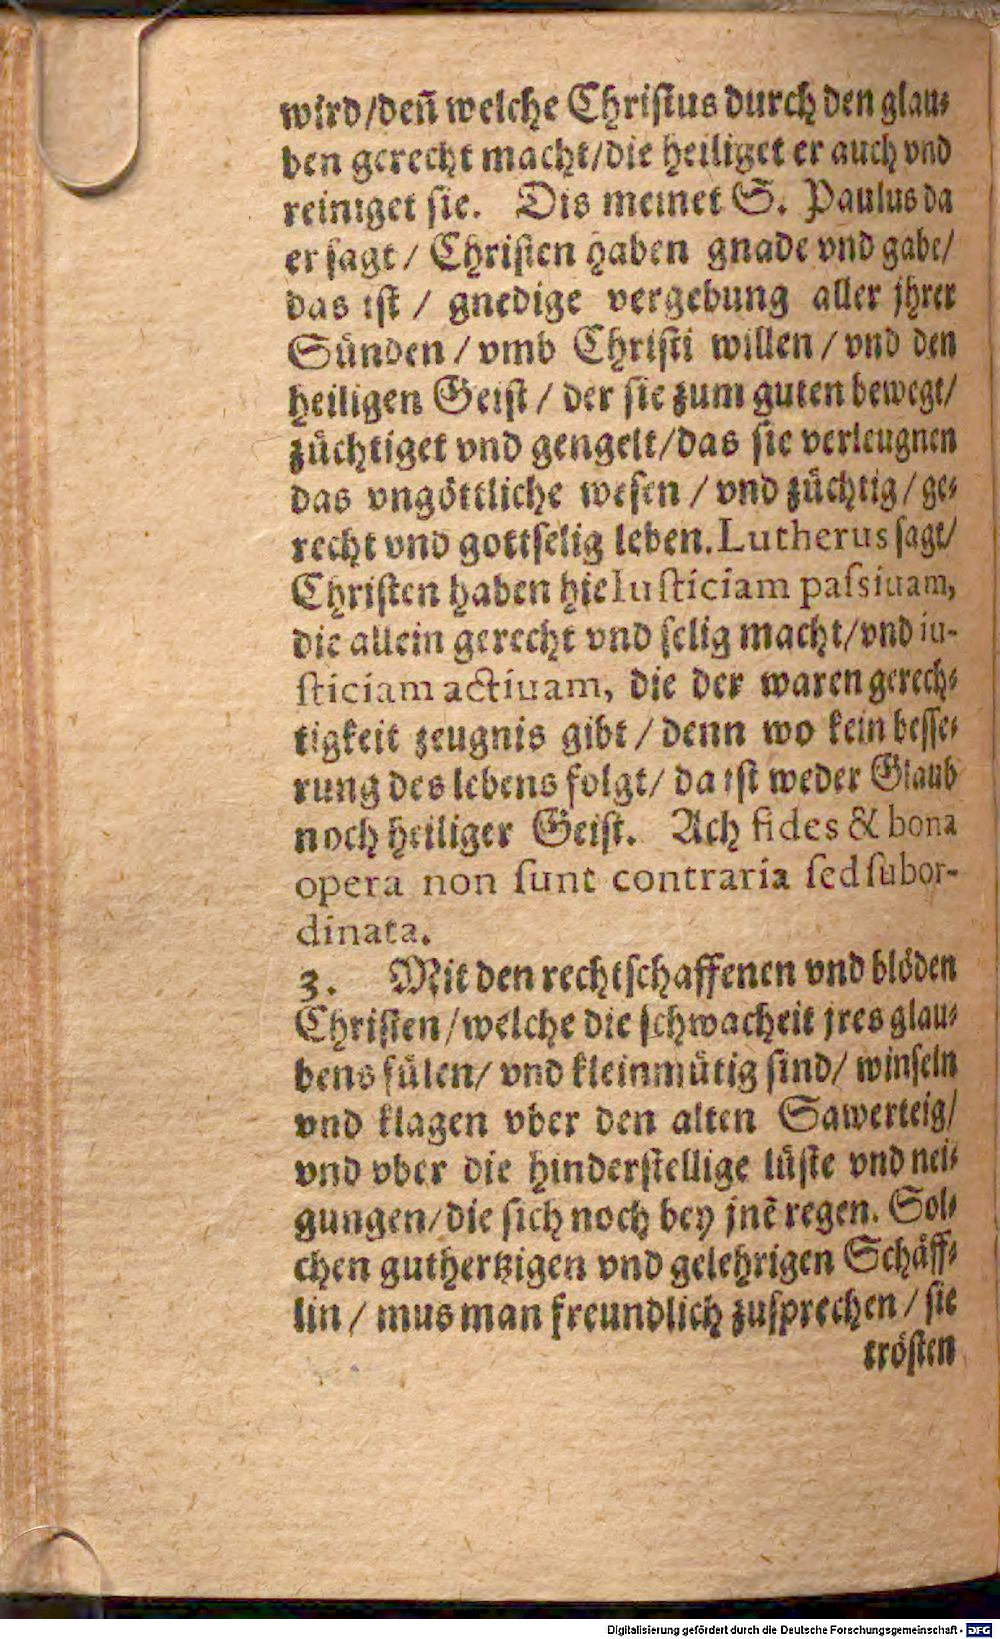 wird/den̄ welche Chriſtus durch den glau⸗
ben gerecht macht/die heiliget er auch vnd
reiniget ſie. Dis meinet S. Paulus da
er ſagt/ Chriſten haben gnade vnd gabe/
das iſt / gnedige vergebung aller jhrer
Sünden / vmb Chriſti willen / vnd den
heiligen Geiſt / der ſie zum guten bewegt/
züchtiget vnd gengelt/das ſie verleugnen
das vngöttliche weſen / vnd züchtig/ ge⸗
recht vnd gottſelig leben. Lutherus ſagt/
Chriſten haben hie Iuſticiam paſsiuam,
die allein gerecht vnd ſelig macht/vnd iu-
ſticiam actiuam, die der waren gerech⸗
tigkeit zeugnis gibt / denn wo kein beſſe⸗
rung des lebens folgt/ da iſt weder Glaub
noch heiliger Geiſt. Ach fides & bona
opera non ſunt contraria ſed ſubor-
dinata.
3. Mit den rechtſchaffenen vnd blöden
Chriſten/welche die ſchwacheit jres glau⸗
bens fülen/ vnd kleinmütig ſind/ winſeln
vnd klagen vber den alten Sawerteig/
vnd vber die hinderſtellige lüſte vnd nei⸗
gungen/die ſich noch bey jnē regen. Sol⸗
chen guthertzigen vnd gelehrigen Schäff⸗
lin / mus man freundlich zuſprechen / ſie
tröſten
Digitalisierung gefördert durch die Deutsche Forschungsgemeinschaft - DFG